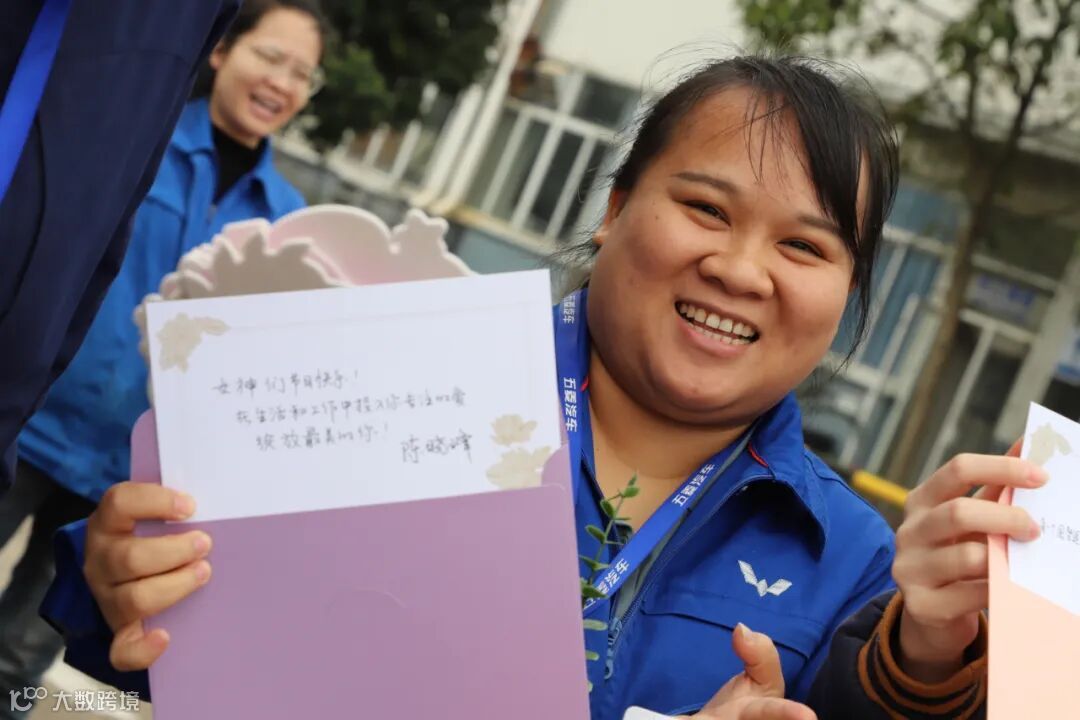 女神们节日快乐！
在生活和工作中投入你专注的爱
绽放最美的你！
陈晓峰
五菱汽车
五菱汽车
五菱汽车
大数跨境